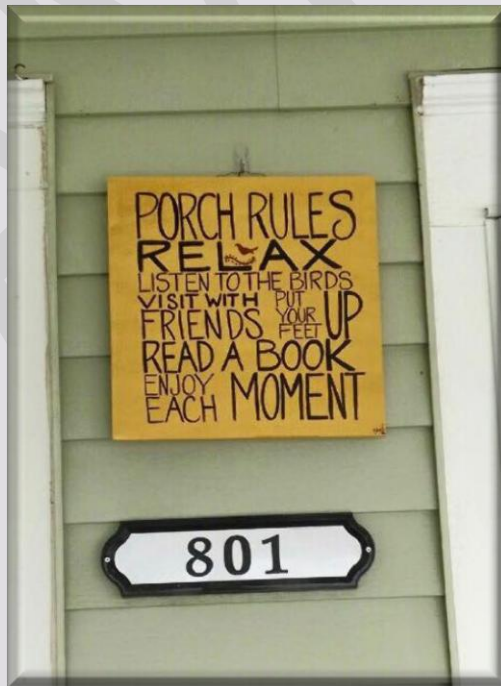 PORCH RULES
RELAX
LISTEN TO THE BIRDS
VISIT WITH FRIENDS
PUT YOUR FEET UP
READ A BOOK
ENJOY EACH MOMENT
801